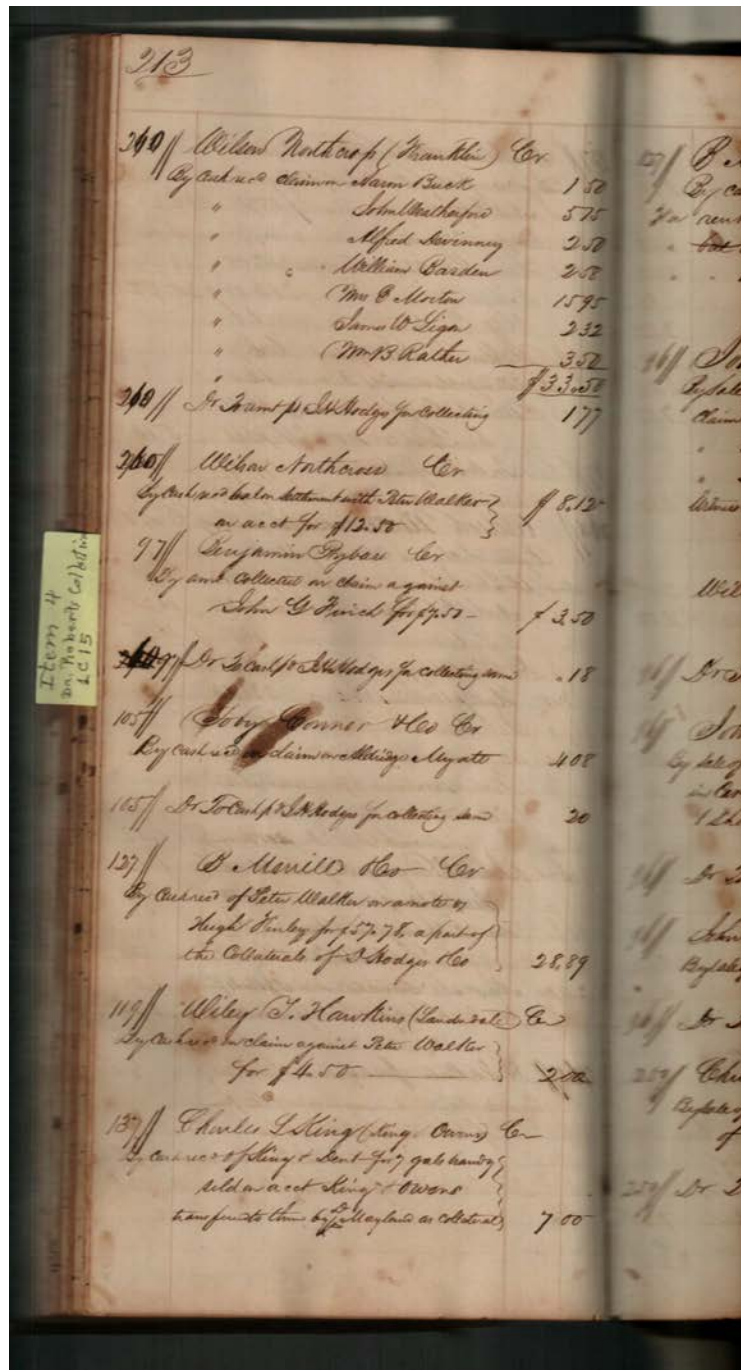 213
260 Wilson Northcrop (Franklin) Cr
By Cash recd claim on Aaron Buck 1 50
" John Weatherford 575
" Alfred Devinney 250
" " William Barden 250
" Mrs E Morton 1595
" James W Ligon 232
" Wm B Rather 350
$33.50
260 Dr To amt pd J H Hodges for collecting 177
260 Wilson Northcross Cr
By Cash recd settlement with Peter Walker
on acct for $12.50 $8.12
97 Benjamin Cr
By amt collected on claim against
John G Finch for $7.50 - $3.50
97 Dr To Cash pd J H Hodges for collecting same .18
105 Toby Connor & Co Cr
By Cash recd on claim on Aldridge Myatt 408
105 Dr To Cash pd J H Hodges for collecting same 20
127 B Merrill & Co Cr
By Cash recd of Peter Walker on a note
Hugh Finley for $57.78, a part of
the Collaterals of J Hodges & Co 28,89
119 Wiley T. Hawkins Cr
By Cash recd on claim against Peter Walker
for $4.50 200
137 Charles L King (King & Owens) Cr
By Cash recd of King & Dent for 7 gals brandy
sold on acct King & Owens
by Mayland as collateral 7 00
Item 4
Dr. Roberts Collection
LC15
127 B
By ca
96 Jo
By Sale
Claim
Witness
Wil
96 Dr
John
By Sale
Dr
259 Cha
By sale of
of
259 Dr